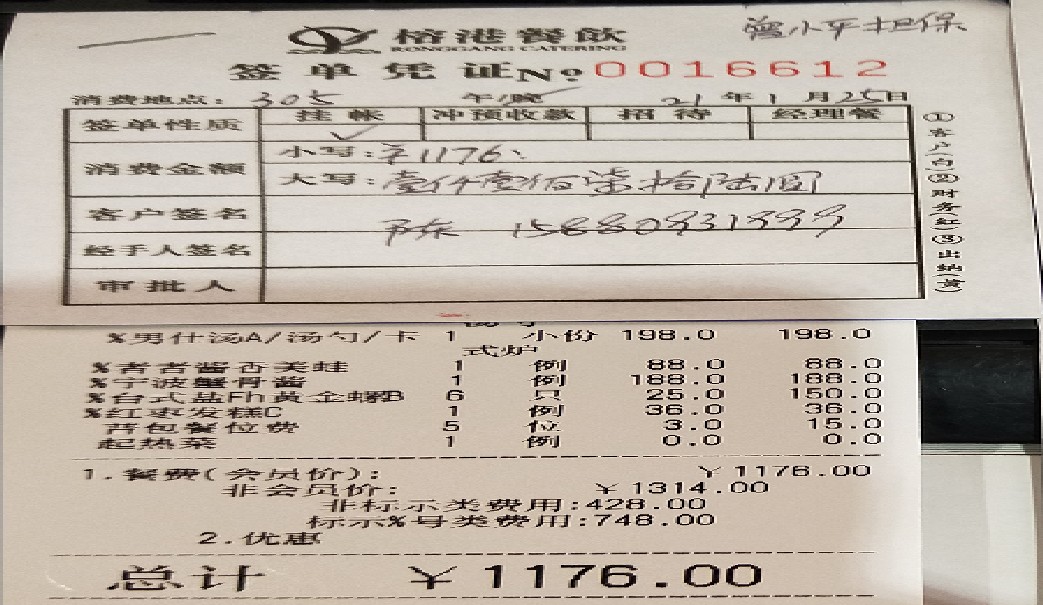 榕港餐飲 曾小平担保
RONGGANG CATERING
签单凭证№0016612
消费地点：305 午/晚 21年1月25日
签单性质 挂帐 冲预收款 招待 经理餐
✓
消费金额 小写：¥1176
大写：壹仟壹佰柒拾陆圆
客户签名
陈 15880931999
经手人签名
审批人
①客户(白)②财务(红)③出纳(黄)
%男仕汤A/汤勺/卡 1 小份 198.0 198.0
式炉
1 例 88.0 88.0
%宁波蟹骨酱 1 例 188.0 188.0
6 只 25.0 150.0
%红枣发糕C 1 例 36.0 36.0
餐位费 5 位 3.0 15.0
起热菜 1 例 0.0 0.0
1.餐费(会员价)： ¥1176.00
非会员价： ¥1314.00
非标示类费用:428.00
标示%号类费用:748.00
2.优惠
总计 ¥1176.00